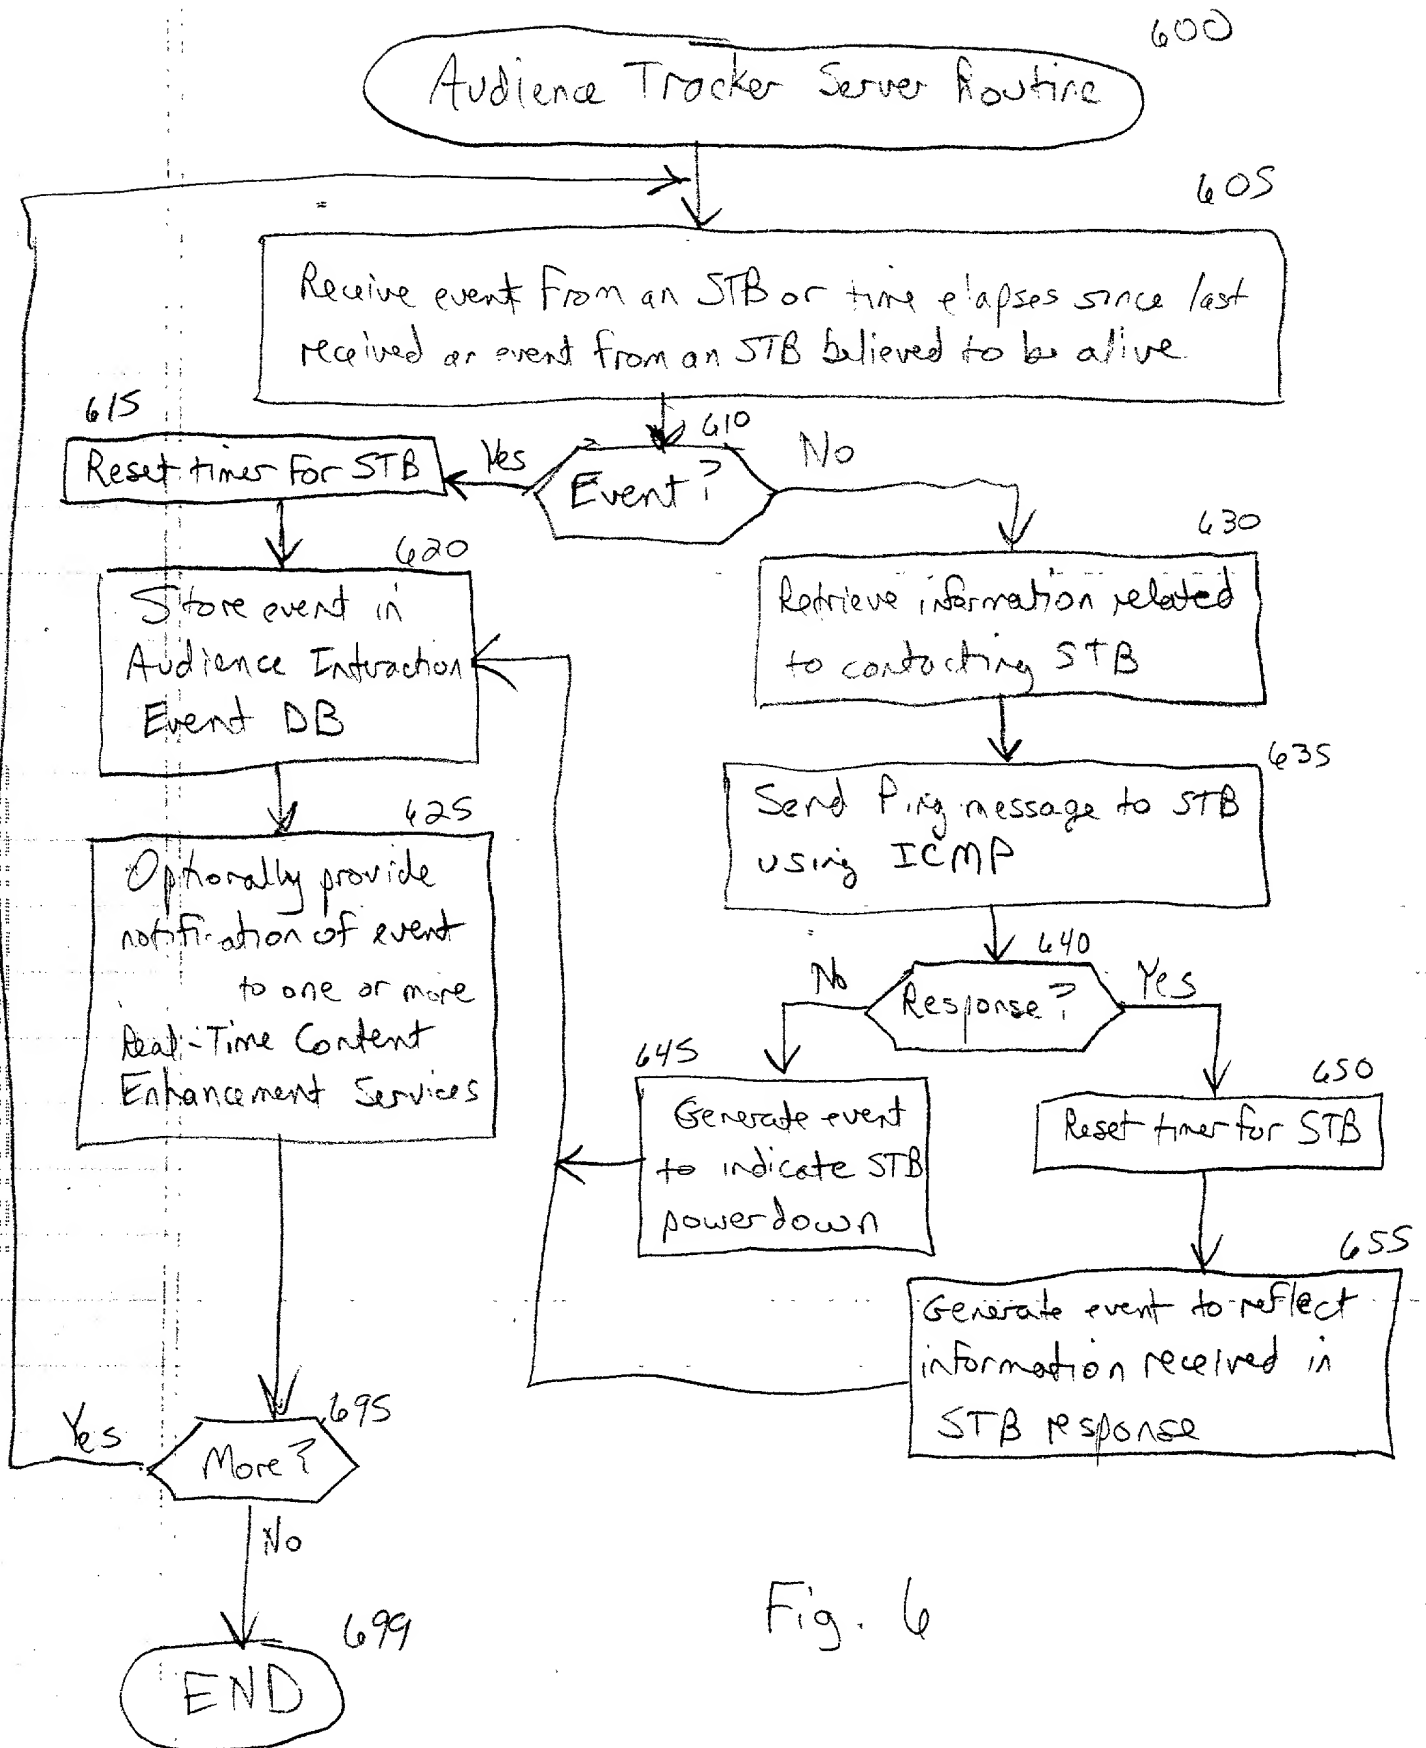 600
Audience Tracker Server Routine
605
Receive event from an STB or time elapses since last
received an event from an STB believed to be alive
615
Reset timer for STB
Yes
610
Event?
No
620
Store event in
Audience Interaction
Event DB
630
Retrieve information related
to contacting STB
635
Send Ping message to STB
using ICMP
625
Optionally provide
notification of event
to one or more
Real-Time Content
Enhancement Services
640
No
Response?
Yes
645
Generate event
to indicate STB
powerdown
650
Reset timer for STB
655
Generate event to reflect
information received in
STB response
695
Yes
More?
No
699
END
Fig. 6